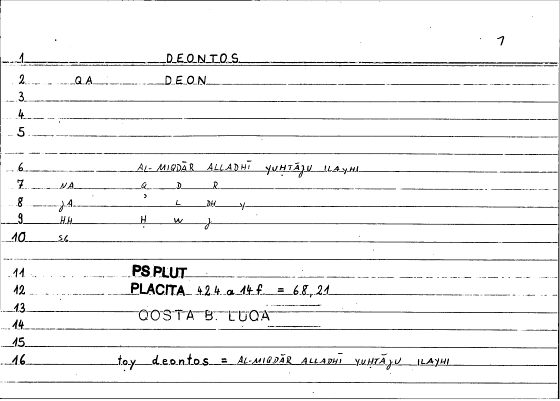 7
1 DEONTOS
2 QA DEON
3
4
5
6 AL-MIQDĀR ALLADHĪ YUḤTĀJU ILAYHI
7 NA Q D R
8 JA ʾ L DH Y
9 HH Ḥ W J
10 SG
11 PS PLUT
12 PLACITA 424 a 14 f = 68,21
13 QOSTA B. LUQA
14
15
16 toy deontos = AL-MIQDĀR ALLADHĪ YUḤTĀJU ILAYHI